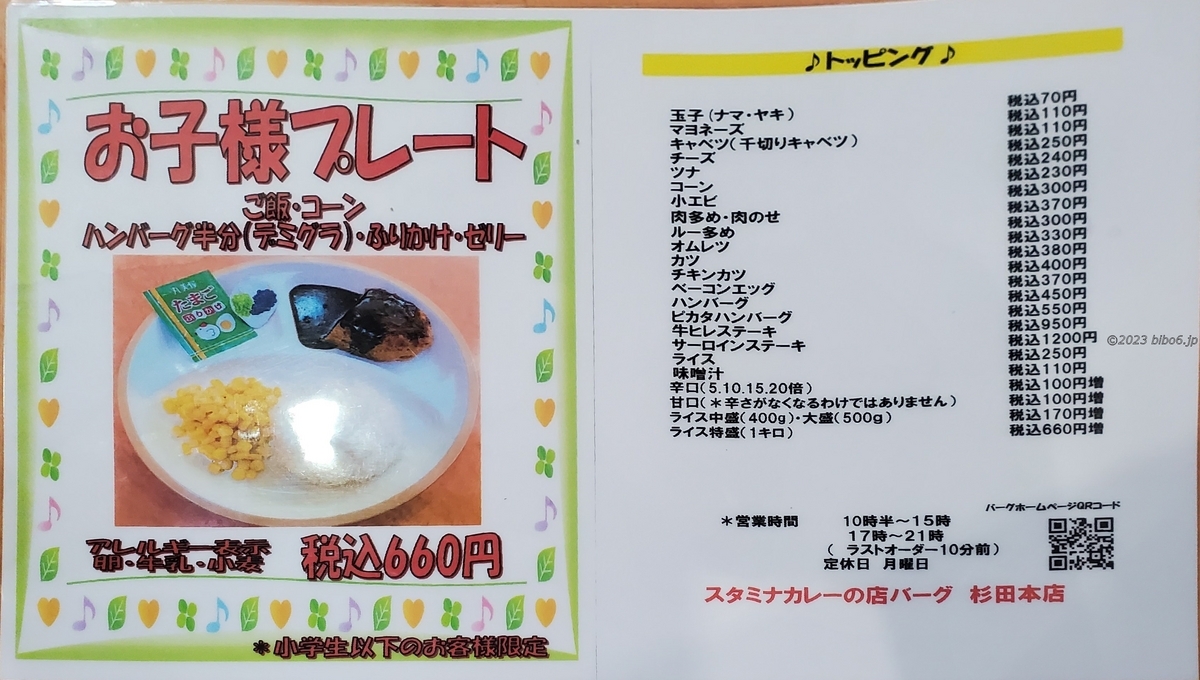 お子様プレート
ご飯・コーン
ハンバーグ半分(デミグラ)・ふりかけ・ゼリー
丸美屋
たまご
ふりかけ
アレルギー表示
卵・牛乳・小麦
税込660円
＊小学生以下のお客様限定
♪トッピング♪
玉子(ナマ・ヤキ) 税込70円
マヨネーズ 税込110円
キャベツ(千切りキャベツ) 税込110円
チーズ 税込250円
ツナ 税込240円
コーン 税込230円
小エビ 税込300円
肉多め・肉のせ 税込370円
ルー多め 税込300円
オムレツ 税込330円
カツ 税込380円
チキンカツ 税込400円
ベーコンエッグ 税込370円
ハンバーグ 税込450円
ピカタハンバーグ 税込550円
牛ヒレステーキ 税込950円
サーロインステーキ 税込1200円
ライス 税込250円
味噌汁 税込110円
辛口(5.10.15.20倍) 税込100円増
甘口(＊辛さがなくなるわけではありません) 税込100円増
ライス中盛(400g)・大盛(500g) 税込170円増
ライス特盛(1キロ) 税込660円増
©2023 bibo6.jp
バーグホームページQRコード
＊営業時間 10時半〜15時
17時〜21時
( ラストオーダー10分前)
定休日 月曜日
スタミナカレーの店バーグ 杉田本店